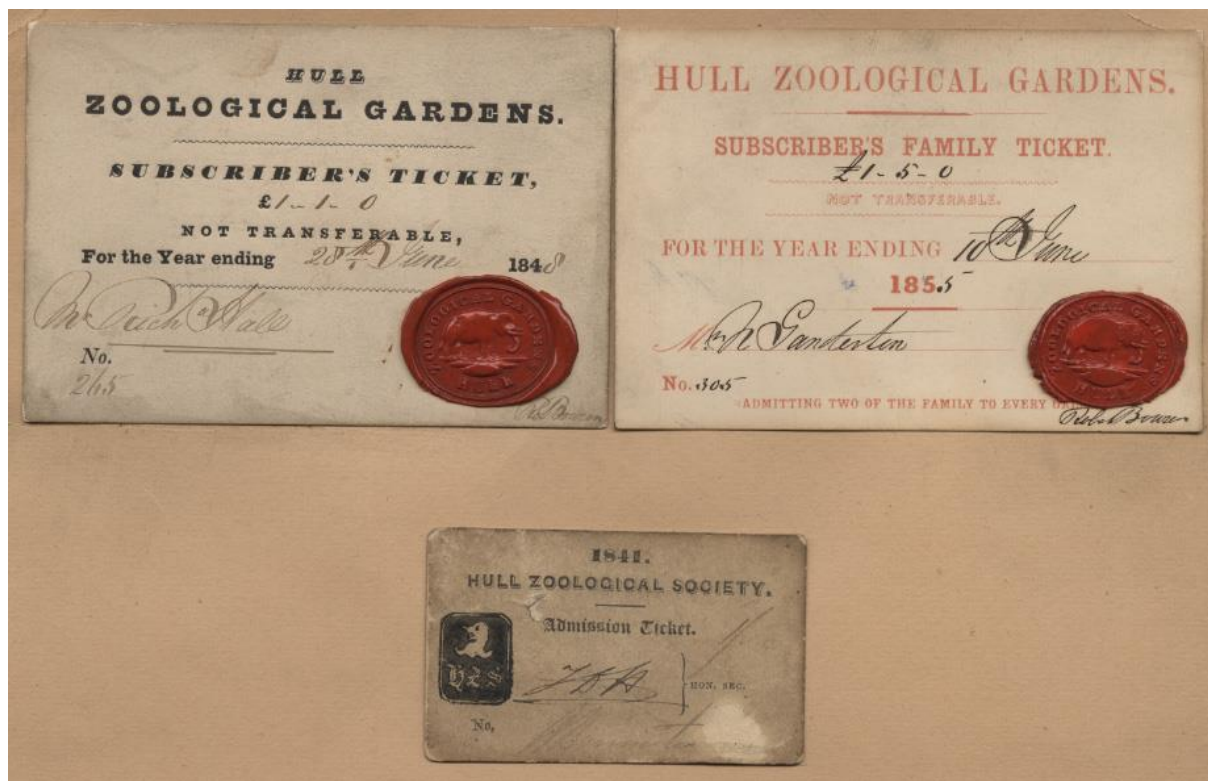 HULL
ZOOLOGICAL GARDENS.
SUBSCRIBER'S TICKET,
£1-1-0
NOT TRANSFERABLE,
For the Year ending 28th June 1848
Mr Richd Hall
No.
265
ZOOLOGICAL GARDENS
HULL
HULL ZOOLOGICAL GARDENS.
SUBSCRIBER'S FAMILY TICKET.
£1-5-0
NOT TRANSFERABLE.
FOR THE YEAR ENDING 10th June
1855
Ganderton
No. 305
ADMITTING TWO OF THE FAMILY TO EVERY
ZOOLOGICAL GARDENS
HULL
Robt Bowser
1841.
HULL ZOOLOGICAL SOCIETY.
Admission Ticket.
HZS
HON. SEC.
No.